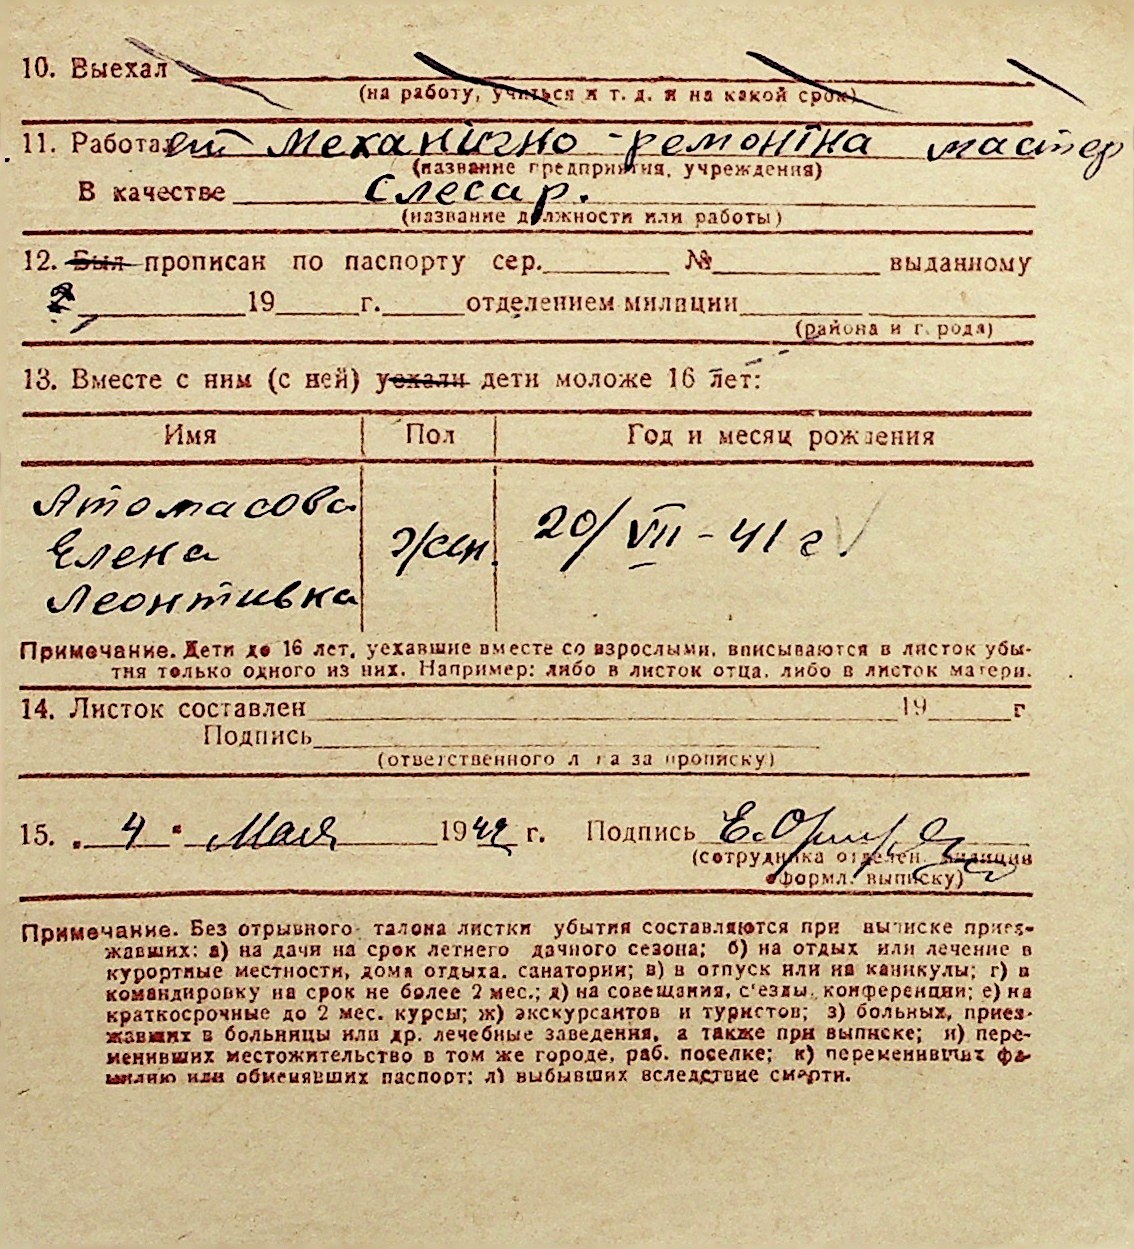 10. Выехал
(на работу, учиться и т. д. и на какой срок)
11. Работает Механічно-ремонтна мастер
(название предприятия, учреждения)
В качестве Слесар.
(название должности или работы)
12. Был прописан по паспорту сер. № выданному
19 г. отделением милиции
(района и города)
13. Вместе с ним (с ней) уехали дети моложе 16 лет:
Имя Пол Год и месяц рождения
Атомасова
Елена жен. 20/VII-41 г
Леонтивна
Примечание. Дети до 16 лет, уехавшие вместе со взрослыми, вписываются в листок убы-
тия только одного из них. Например: либо в листок отца, либо в листок матери.
14. Листок составлен 19 г
Подпись
(ответственного лица за прописку)
15. „4" Мая 1942 г. Подпись
(сотрудника отделен. милиции
оформл. выписку)
Примечание. Без отрывного талона листки убытия составляются при выписке приез-
жавших: а) на дачи на срок летнего дачного сезона; б) на отдых или лечение в
курортные местности, дома отдыха, санатории; в) в отпуск или на каникулы; г) в
командировку на срок не более 2 мес.; д) на совещания, с'езды, конференции; е) на
краткосрочные до 2 мес. курсы; ж) экскурсантов и туристов; з) больных, приез-
жавших в больницы или др. лечебные заведения, а также при выписке; и) пере-
менивших местожительство в том же городе, раб. поселке; к) переменивших фа-
милию или обменявших паспорт; л) выбывших вследствие смерти.